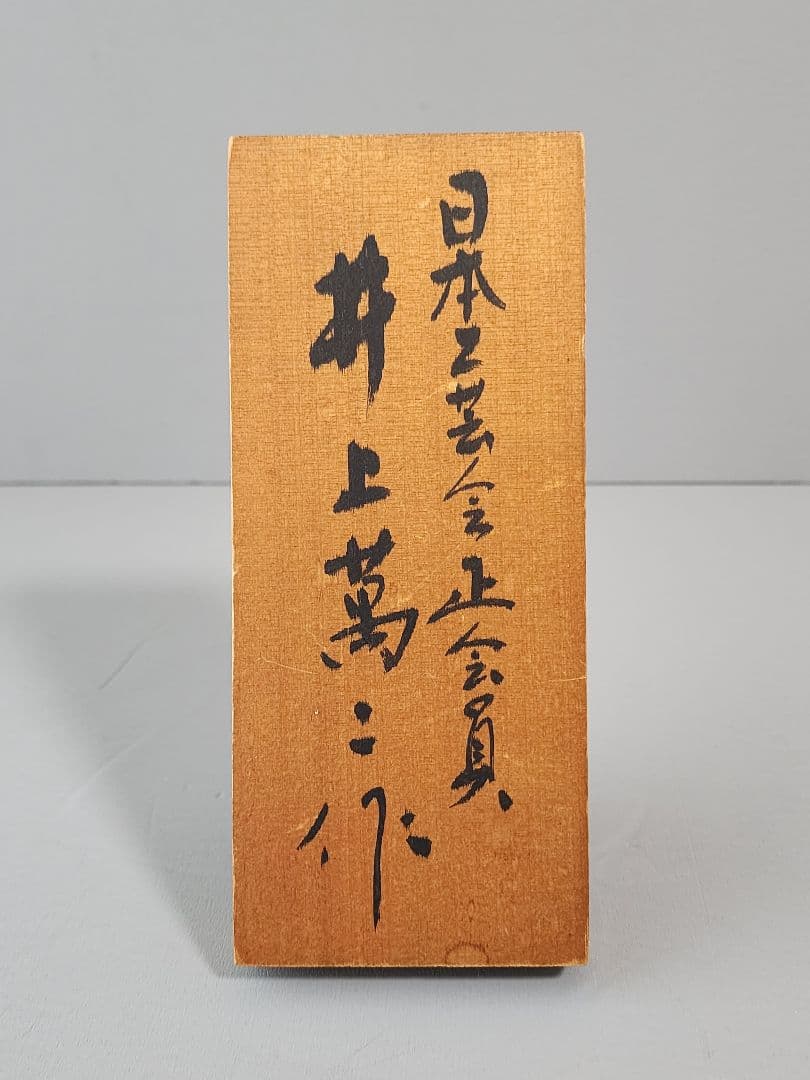 日本工芸会正会員
井上萬二作